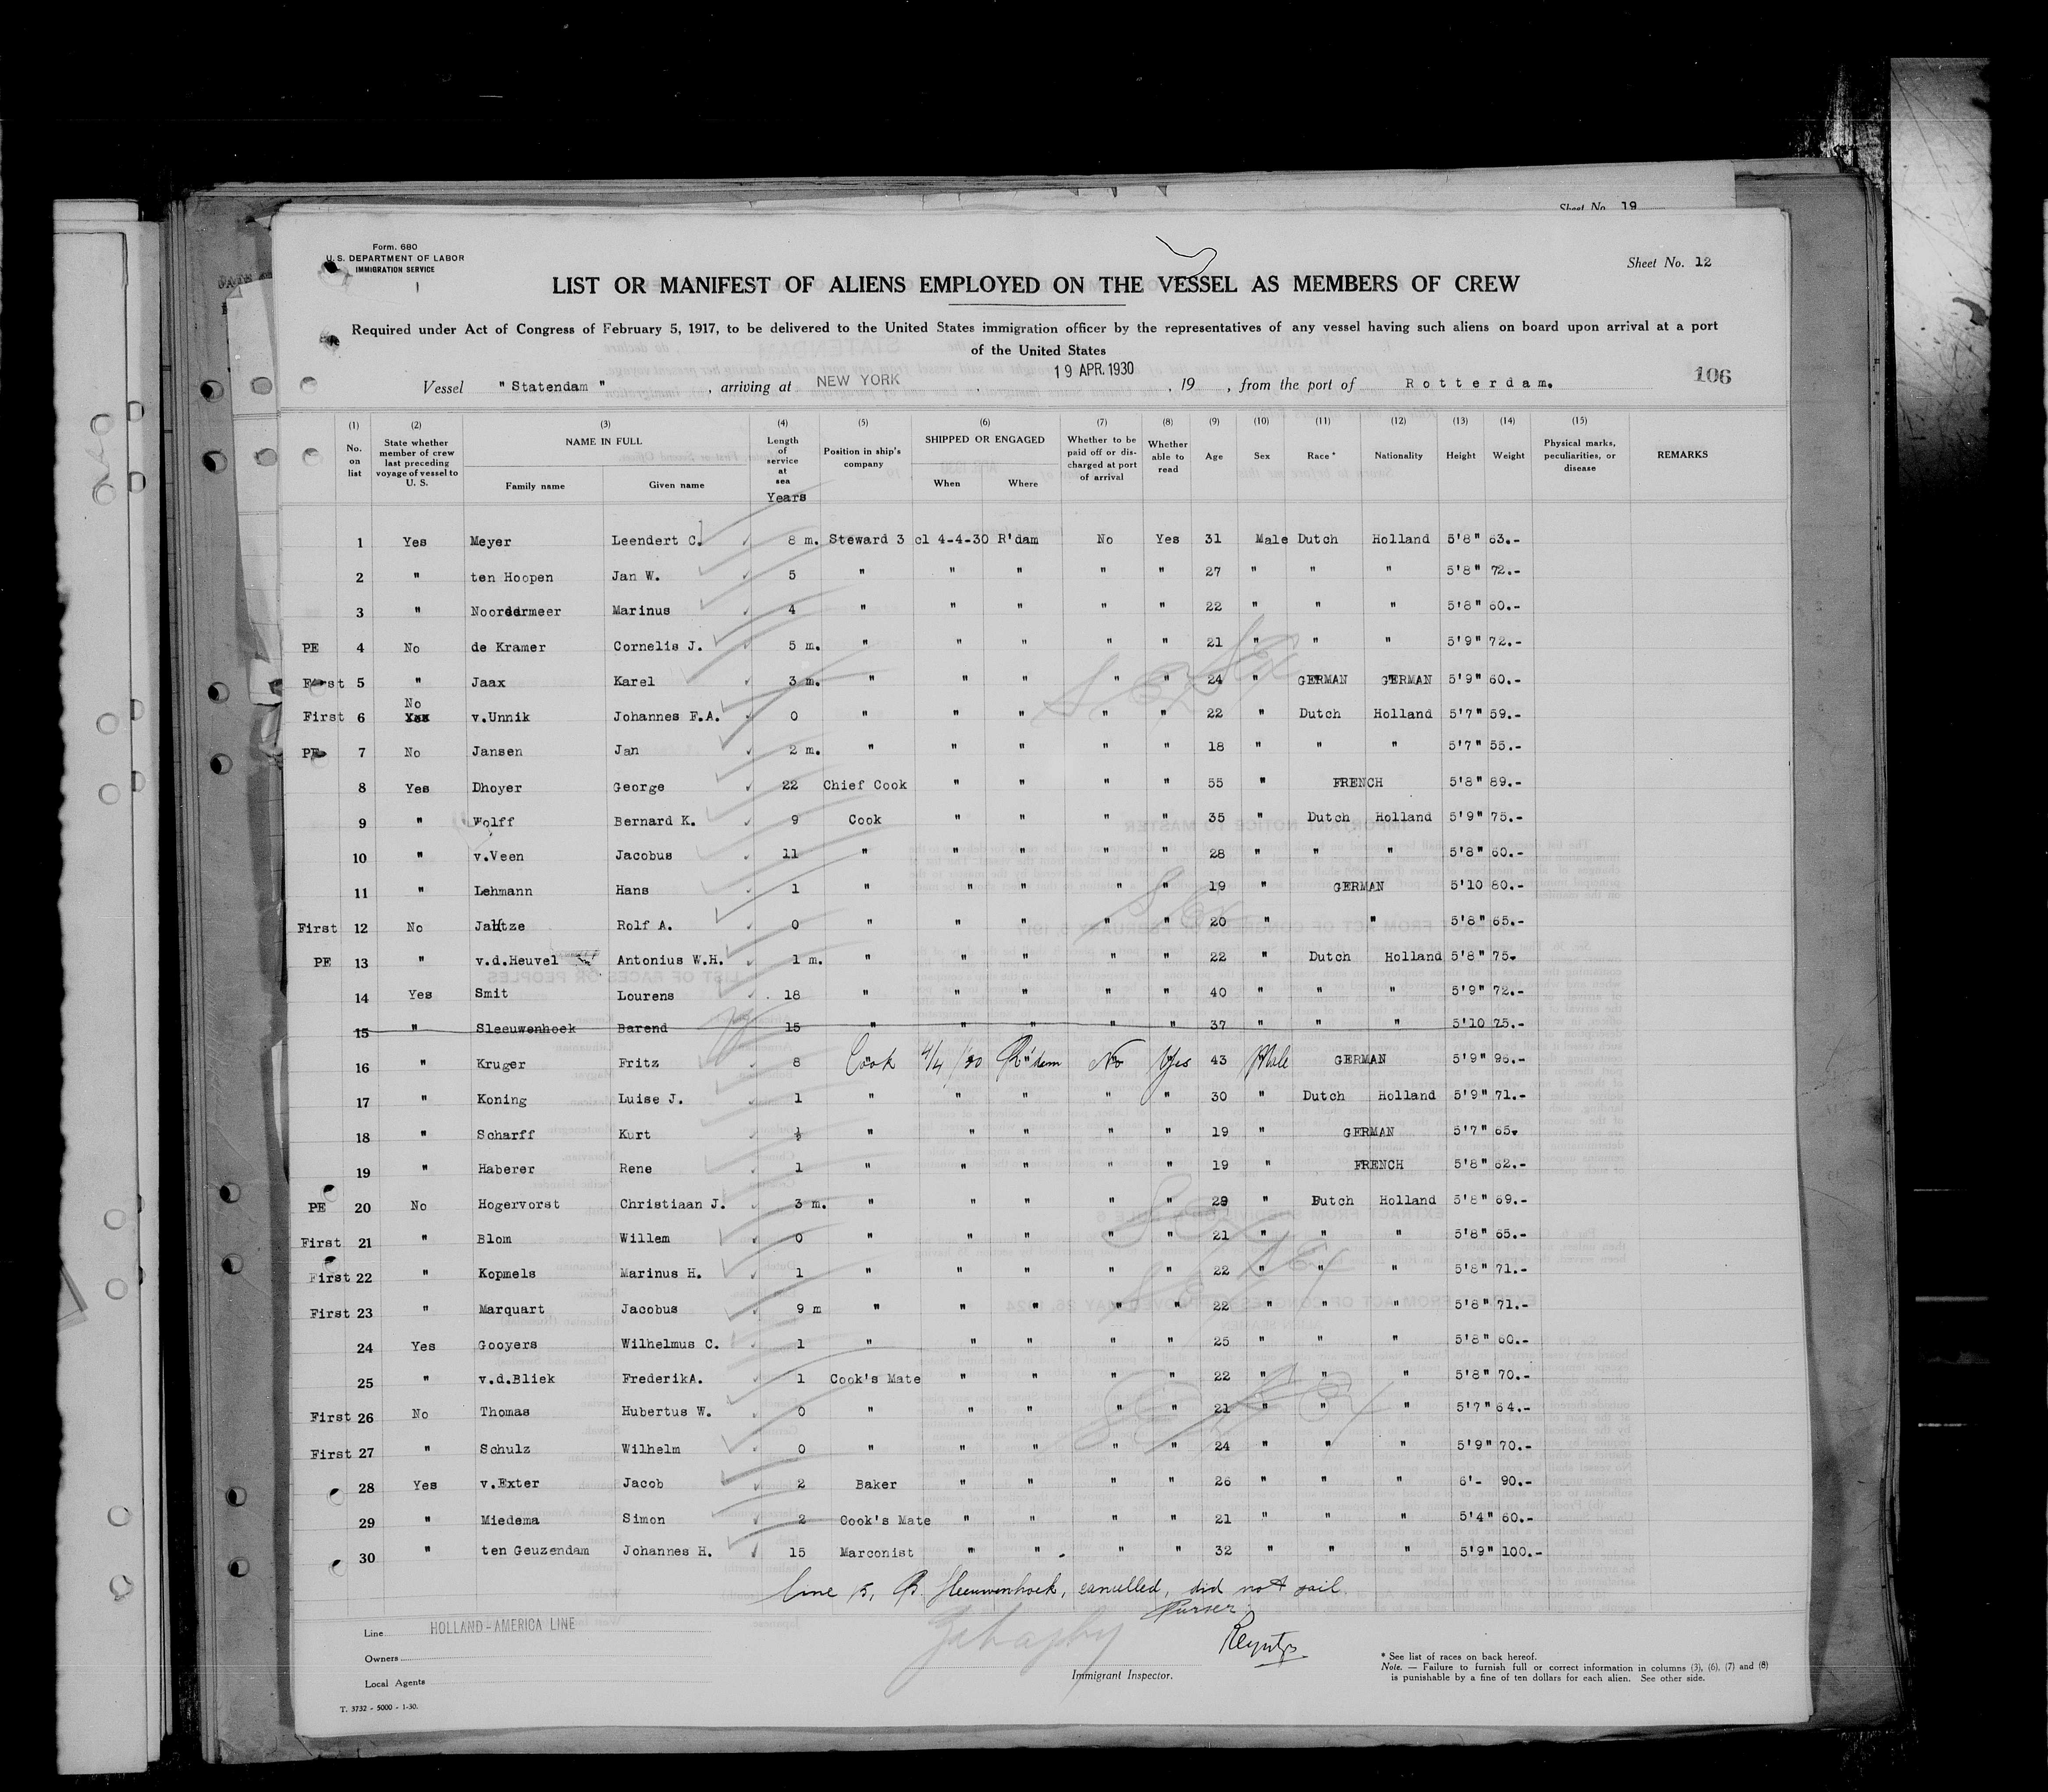 Sheet No. 19
Form. 680
U. S. DEPARTMENT OF LABOR
IMMIGRATION SERVICE
Sheet No. 12
LIST OR MANIFEST OF ALIENS EMPLOYED ON THE VESSEL AS MEMBERS OF CREW
Required under Act of Congress of February 5, 1917, to be delivered to the United States immigration officer by the representatives of any vessel having such aliens on board upon arrival at a port
of the United States
Vessel "Statendam", arriving at NEW YORK, 19 APR. 1930, 19 , from the port of Rotterdam.
106
(1) No. on list (2) State whether member of crew last preceding voyage of vessel to U. S. (3) NAME IN FULL Family name Given name (4) Length of service at sea Years (5) Position in ship's company (6) SHIPPED OR ENGAGED When Where (7) Whether to be paid off or discharged at port of arrival (8) Whether able to read (9) Age (10) Sex (11) Race* (12) Nationality (13) Height (14) Weight (15) Physical marks, peculiarities, or disease REMARKS
1 Yes Meyer Leendert C. 8 m. Steward 3 cl 4-4-30 R'dam No Yes 31 Male Dutch Holland 5'8" 63.-
2 " ten Hoopen Jan W. 5 " " " " " 27 " " " 5'8" 72.-
3 " Noordermeer Marinus 4 " " " " " 22 " " " 5'8" 60.-
PE 4 No de Kramer Cornelis J. 5 m. " " " " " 21 " " " 5'9" 72.-
First 5 " Jaax Karel 3 m. " " " " " 24 " GERMAN GERMAN 5'9" 60.-
First 6 No Yes v.Unnik Johannes F.A. 0 " " " " " 22 " Dutch Holland 5'7" 59.-
PE 7 No Jansen Jan 2 m. " " " " " 18 " " " 5'7" 55.-
8 Yes Dhoyer George 22 Chief Cook " " " " 55 " FRENCH 5'8" 89.-
9 " Wolff Bernard K. 9 Cook " " " " 35 " Dutch Holland 5'9" 75.-
10 " v.Veen Jacobus 11 " " " " " 28 " " " 5'8" 60.-
11 " Lehmann Hans 1 " " " " " 19 " GERMAN 5'10 80.-
First 12 No Jahtze Rolf A. 0 " " " " " 20 " " 5'8" 65.-
PE 13 " v.d.Heuvel Antonius W.H. 1 m. " " " " " 22 " Dutch Holland 5'8" 75.
14 Yes Smit Lourens 18 " " " " " 40 " " " 5'9" 72.-
15 " Sleeuwenhoek Barend 15 " " " " " 37 " " " 5'10 75.-
16 " Kruger Fritz 8 Cook 4/4/30 R'dam No Yes 43 Male GERMAN 5'9" 95.-
17 " Koning Luise J. 1 " " " " " 30 " Dutch Holland 5'9" 71.-
18 " Scharff Kurt ½ " " " " " 19 " GERMAN 5'7" 65.
19 " Haberer Rene 1 " " " " " 19 " FRENCH 5'8" 62.-
PE 20 No Hogervorst Christiaan J. 3 m. " " " " " 29 " Dutch Holland 5'8" 69.-
First 21 " Blom Willem 0 " " " " " 21 " " " 5'8" 65.-
First 22 " Kopmels Marinus H. 1 " " " " " 22 " " " 5'8" 71.-
First 23 " Marquart Jacobus 9 m " " " " " 22 " " " 5'8" 71.-
24 Yes Gooyers Wilhelmus C. 1 " " " " " 25 " " " 5'8" 60.-
25 " v.d.Bliek FrederikA. 1 Cook's Mate " " " " 22 " " " 5'8" 70.-
First 26 No Thomas Hubertus W. 0 " " " " " 21 " " " 5'7" 64.-
First 27 " Schulz Wilhelm 0 " " " " " 24 " " " 5'9" 70.-
28 Yes v.Exter Jacob 2 Baker " " " " 26 " " " 6'- 90.-
29 " Miedema Simon 2 Cook's Mate " " " " 21 " " " 5'4" 60.-
30 " ten Geuzendam Johannes H. 15 Marconist " " " " 32 " " " 5'9" 100.-
Line 15, B. Sleeuwenhoek, cancelled, did not sail
Purser
Line HOLLAND-AMERICA LINE
Owners
Local Agents
Immigrant Inspector.
* See list of races on back hereof.
Note. — Failure to furnish full or correct information in columns (3), (6), (7) and (8)
is punishable by a fine of ten dollars for each alien. See other side.
T. 3732 - 5000 - 1-30.